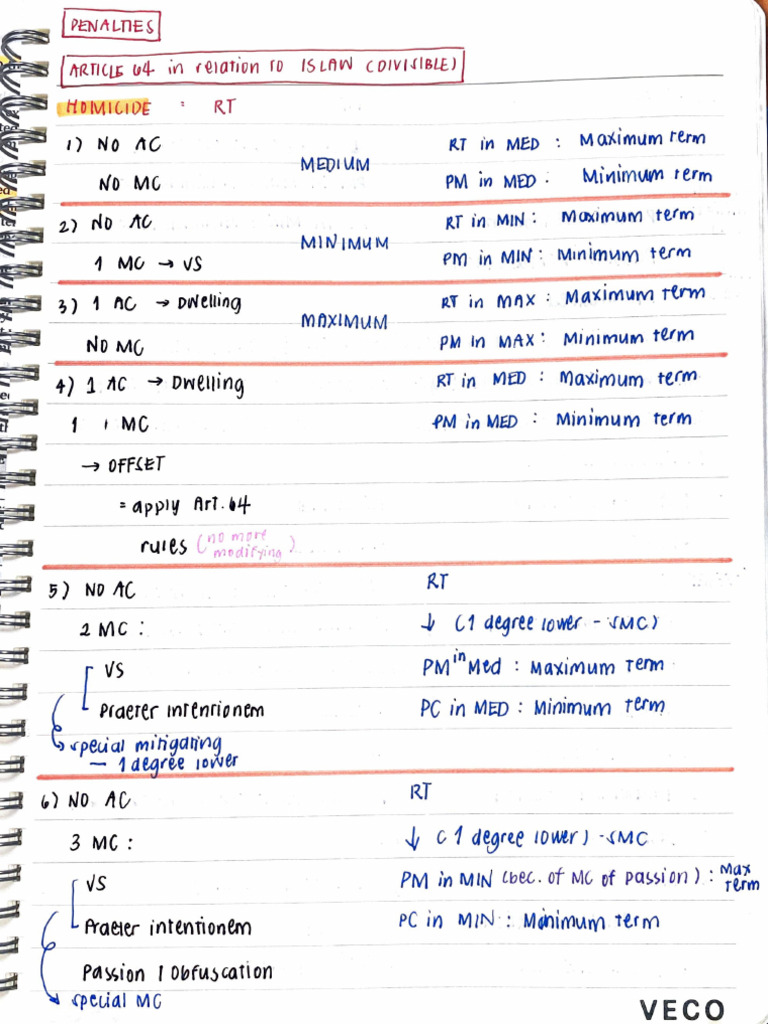 PENALTIES
ARTICLE 64 in relation to ISLAW (DIVISIBLE)
HOMICIDE : RT
1) NO AC
NO MC
MEDIUM
RT in MED : Maximum term
PM in MED : Minimum term
2) NO AC
1 MC → VS
MINIMUM
RT in MIN : Maximum term
PM in MIN : Minimum term
3) 1 AC → Dwelling
NO MC
MAXIMUM
RT in MAX : Maximum term
PM in MAX : Minimum term
4) 1 AC → Dwelling
1 MC
→ OFFSET
= apply Art. 64
rules (no more modifying)
RT in MED : Maximum term
PM in MED : Minimum term
5) NO AC
2 MC :
VS
Praeter intentionem
→ special mitigating
— 1 degree lower
RT
↓ (1 degree lower - SMC)
PM in Med : Maximum term
PC in MED : Minimum term
6) NO AC
3 MC :
VS
Praeter intentionem
Passion / Obfuscation
→ special MC
RT
↓ (1 degree lower) - SMC
PM in MIN (bec. of MC of passion) : Max term
PC in MIN : Minimum term
VECO